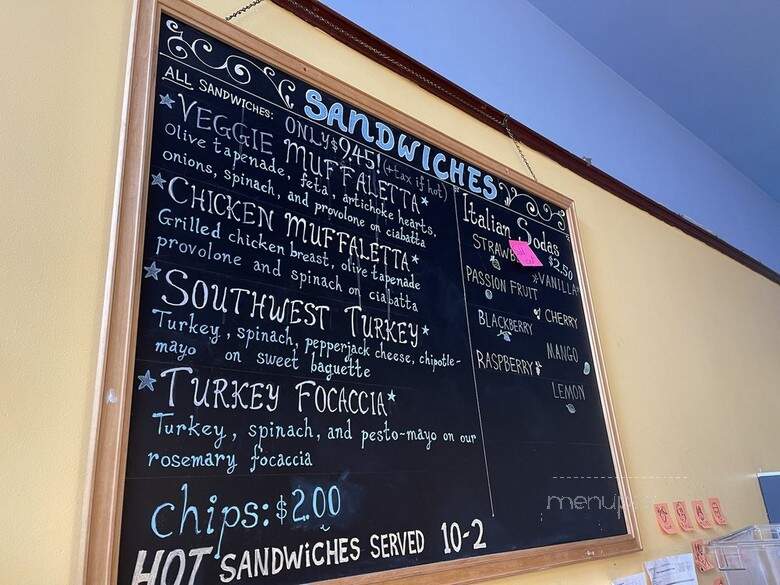 SANDWICHES
ALL SANDWICHES: ONLY $9.45! (+tax if hot)
VEGGIE MUFFALETTA
olive tapenade, feta, artichoke hearts,
onions, spinach, and provolone on ciabatta
CHICKEN MUFFALETTA
Grilled chicken breast, olive tapenade
provolone and spinach on ciabatta
SOUTHWEST TURKEY
Turkey, spinach, pepperjack cheese, chipotle-
mayo on sweet baguette
TURKEY FOCACCIA
Turkey, spinach, and pesto-mayo on our
rosemary focaccia
chips: $2.00
HOT SANDWICHES SERVED 10-2
Italian Sodas
$2.50
STRAWB
VANILLA
PASSION FRUIT
CHERRY
BLACKBERRY
MANGO
RASPBERRY
LEMON
menup